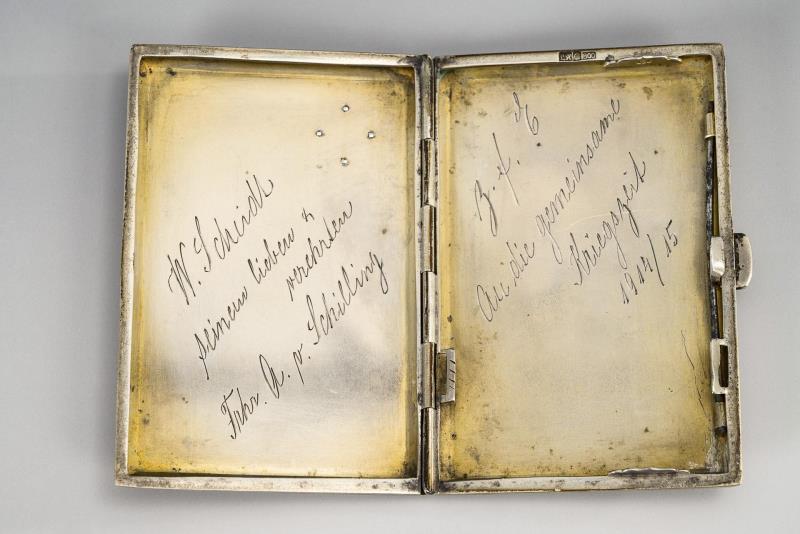 W. Scheidt
seinem lieben &
verehrten
Frhr. A. v. Schilling
Z. f. E
An die gemeinsame
Kriegszeit
1914/15
800